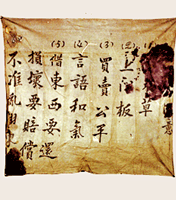 意
草
(2)
上门板
(3)
買賣公平
(4)
言語和氣
(5)
借東西要還
損壞要賠償
不准亂